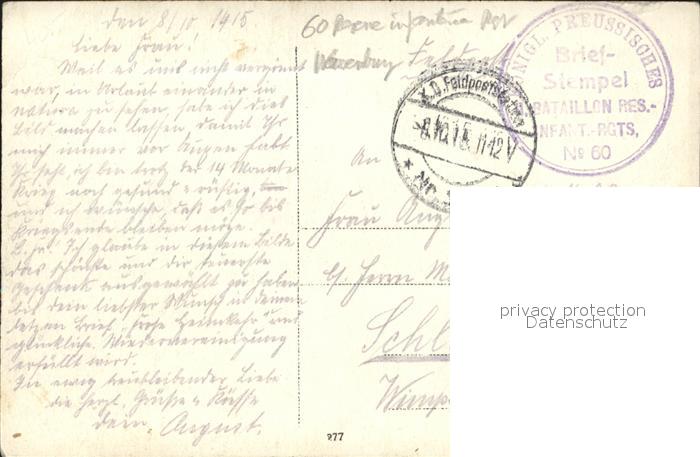 den 8/10 1915
Liebe Frau!
Weil es uns nicht vergönnt
war, in Urlaub einander in
natura zu sehen, habe ich dies
Bild machen lassen, damit Ihr
mich immer vor Augen habt
Ihr seht, ich bin trotz der 14 Monate
Krieg noch gesund u rüstig,
und ich wünsche, daß es so bis
Kriegsende bleiben möge.
L. Fr.! Ich glaube in diesem Bilde
das schönste und dir teuerste
Geschenk ausgewählt zu haben
bis dein liebster Wunsch in deinem
letzten Brief, frohe Heimkehr und
glückliche Wiedervereinigung
erfüllt wird.
In ewig treubleibender Liebe
die herzl. Grüße u Küsse
dein August.
60 Reserve infanterie Rgt
Feld
KÖNIGL. PREUSSISCHES
Brief-
Stempel
BATAILLON RES.-
INFANT.-RGTS,
No 60
K.D. Feldpost
8.10.15. 11-12 V
An
Frau Aug
b/ Herrn M
Schl
privacy protection
Datenschutz
277